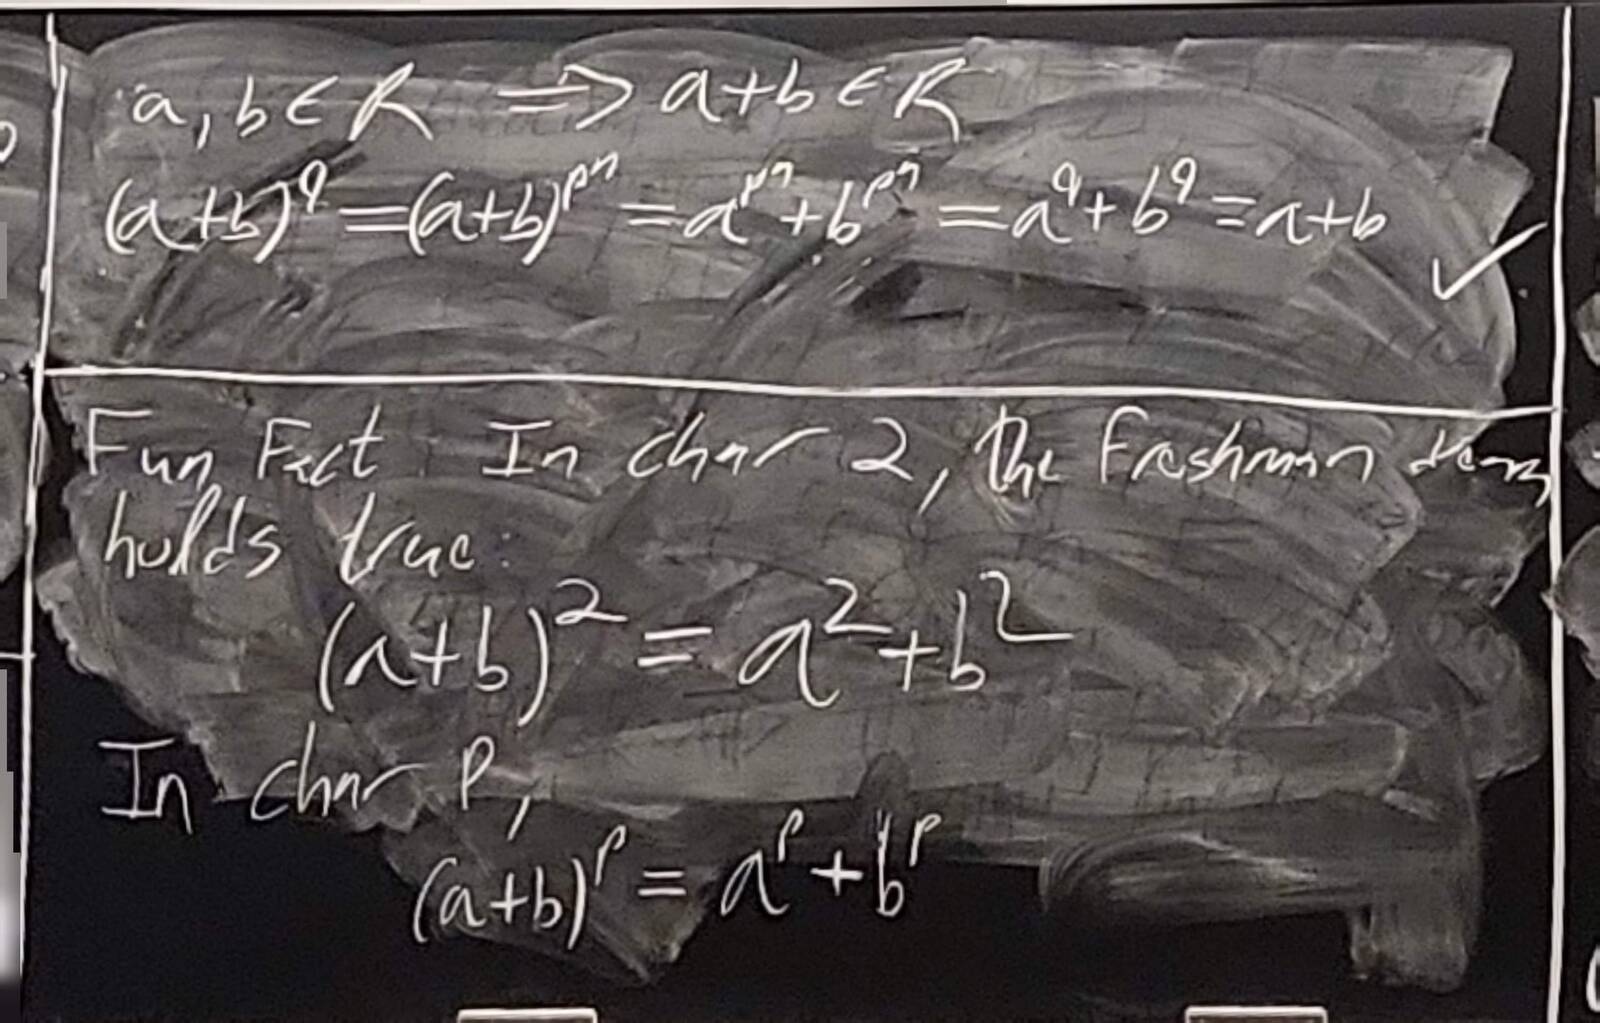 a, b ∈ R ⟹ a+b ∈ R
(a+b)^q = (a+b)^{p^n} = a^{p^n} + b^{p^n} = a^q + b^q = a+b ✓
Fun Fact: In char 2, the Freshman
holds true:
(a+b)^2 = a^2 + b^2
In char p,
(a+b)^p = a^p + b^p